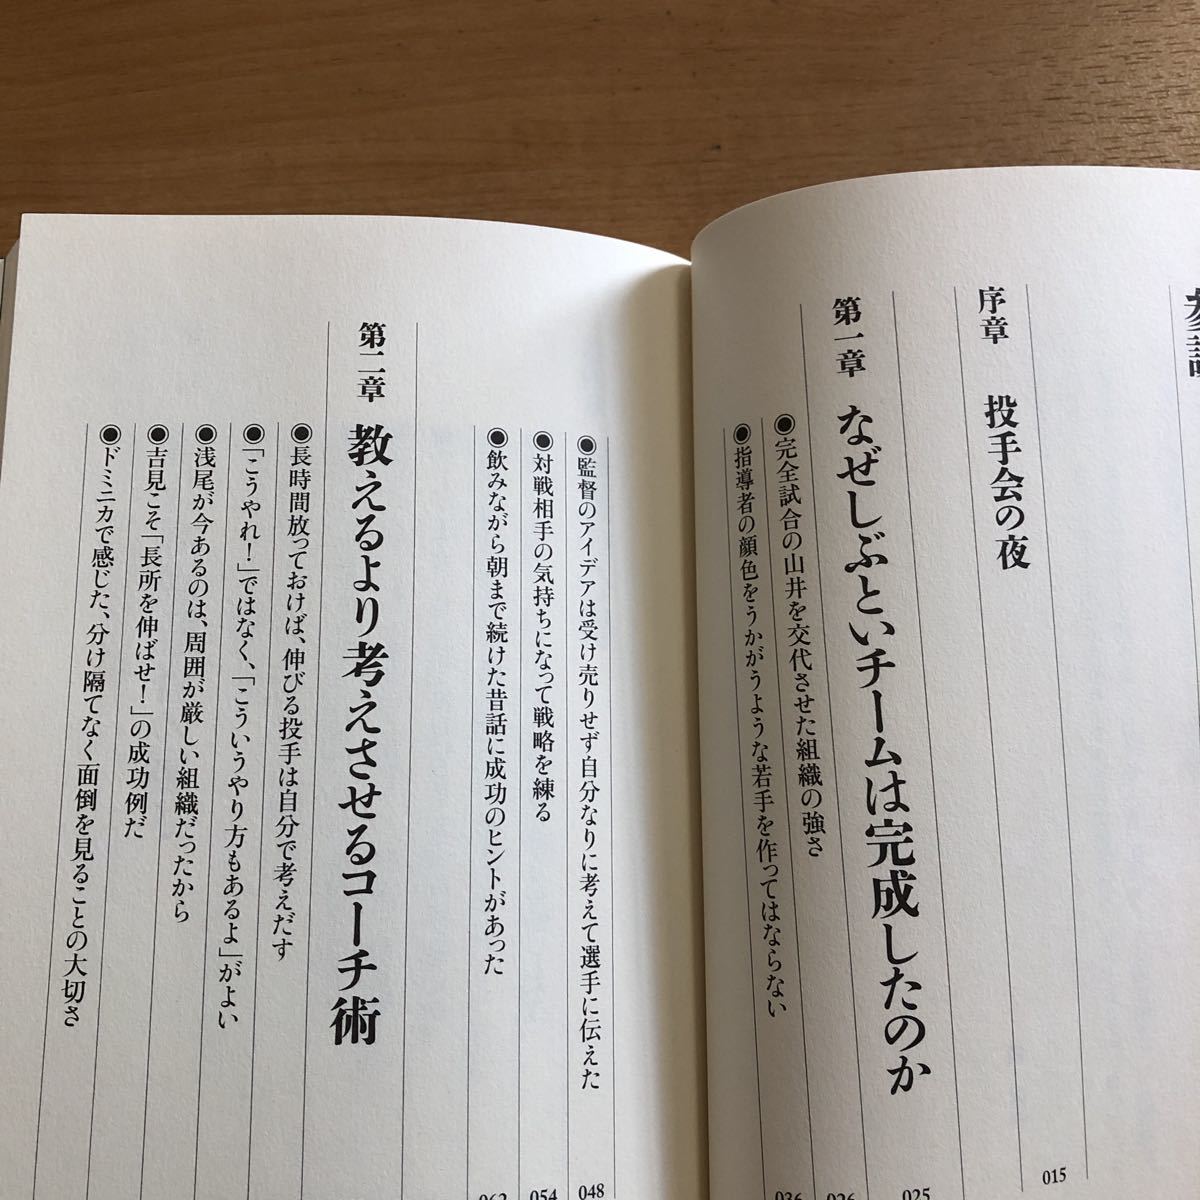 序章 投手会の夜 015
第一章 なぜしぶといチームは完成したのか 025
◉完全試合の山井を交代させた組織の強さ 026
◉指導者の顔色をうかがうような若手を作ってはならない 036
◉監督のアイデアは受け売りせず自分なりに考えて選手に伝えた 048
◉対戦相手の気持ちになって戦略を練る 054
◉飲みながら朝まで続けた昔話に成功のヒントがあった 062
第二章 教えるより考えさせるコーチ術
◉長時間放っておけば、伸びる投手は自分で考えだす
◉「こうやれ！」ではなく、「こういうやり方もあるよ」がよい
◉浅尾が今あるのは、周囲が厳しい組織だったから
◉吉見こそ「長所を伸ばせ！」の成功例だ
◉ドミニカで感じた、分け隔てなく面倒を見ることの大切さ